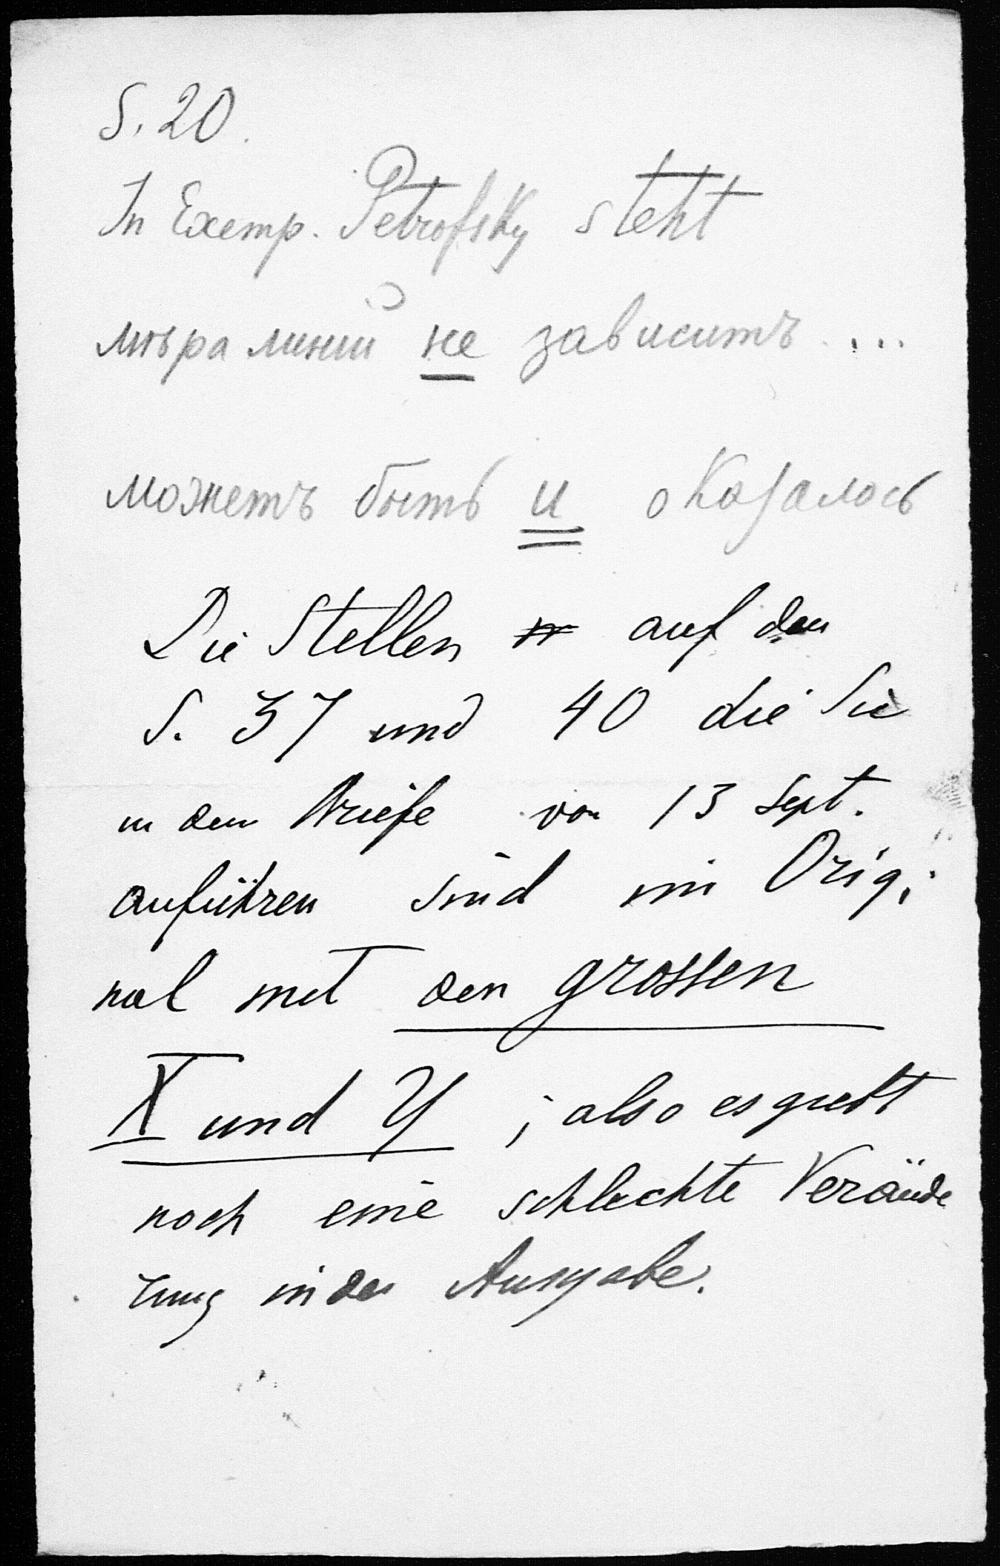 S. 20.
In Exemp. Petrofsky steht
мѣра линий не зависитъ ....
можетъ быть и оказалось
Die Stellen auf den
S. 37 und 40 die Sie
in dem Briefe von 13 Sept.
anführen sind im Origi
nal mit den grossen
X und Y ; also es giebt
noch eine schlechte Verände
rung in der Ausgabe.